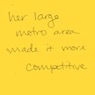 her large
metro area
made it more
competitive